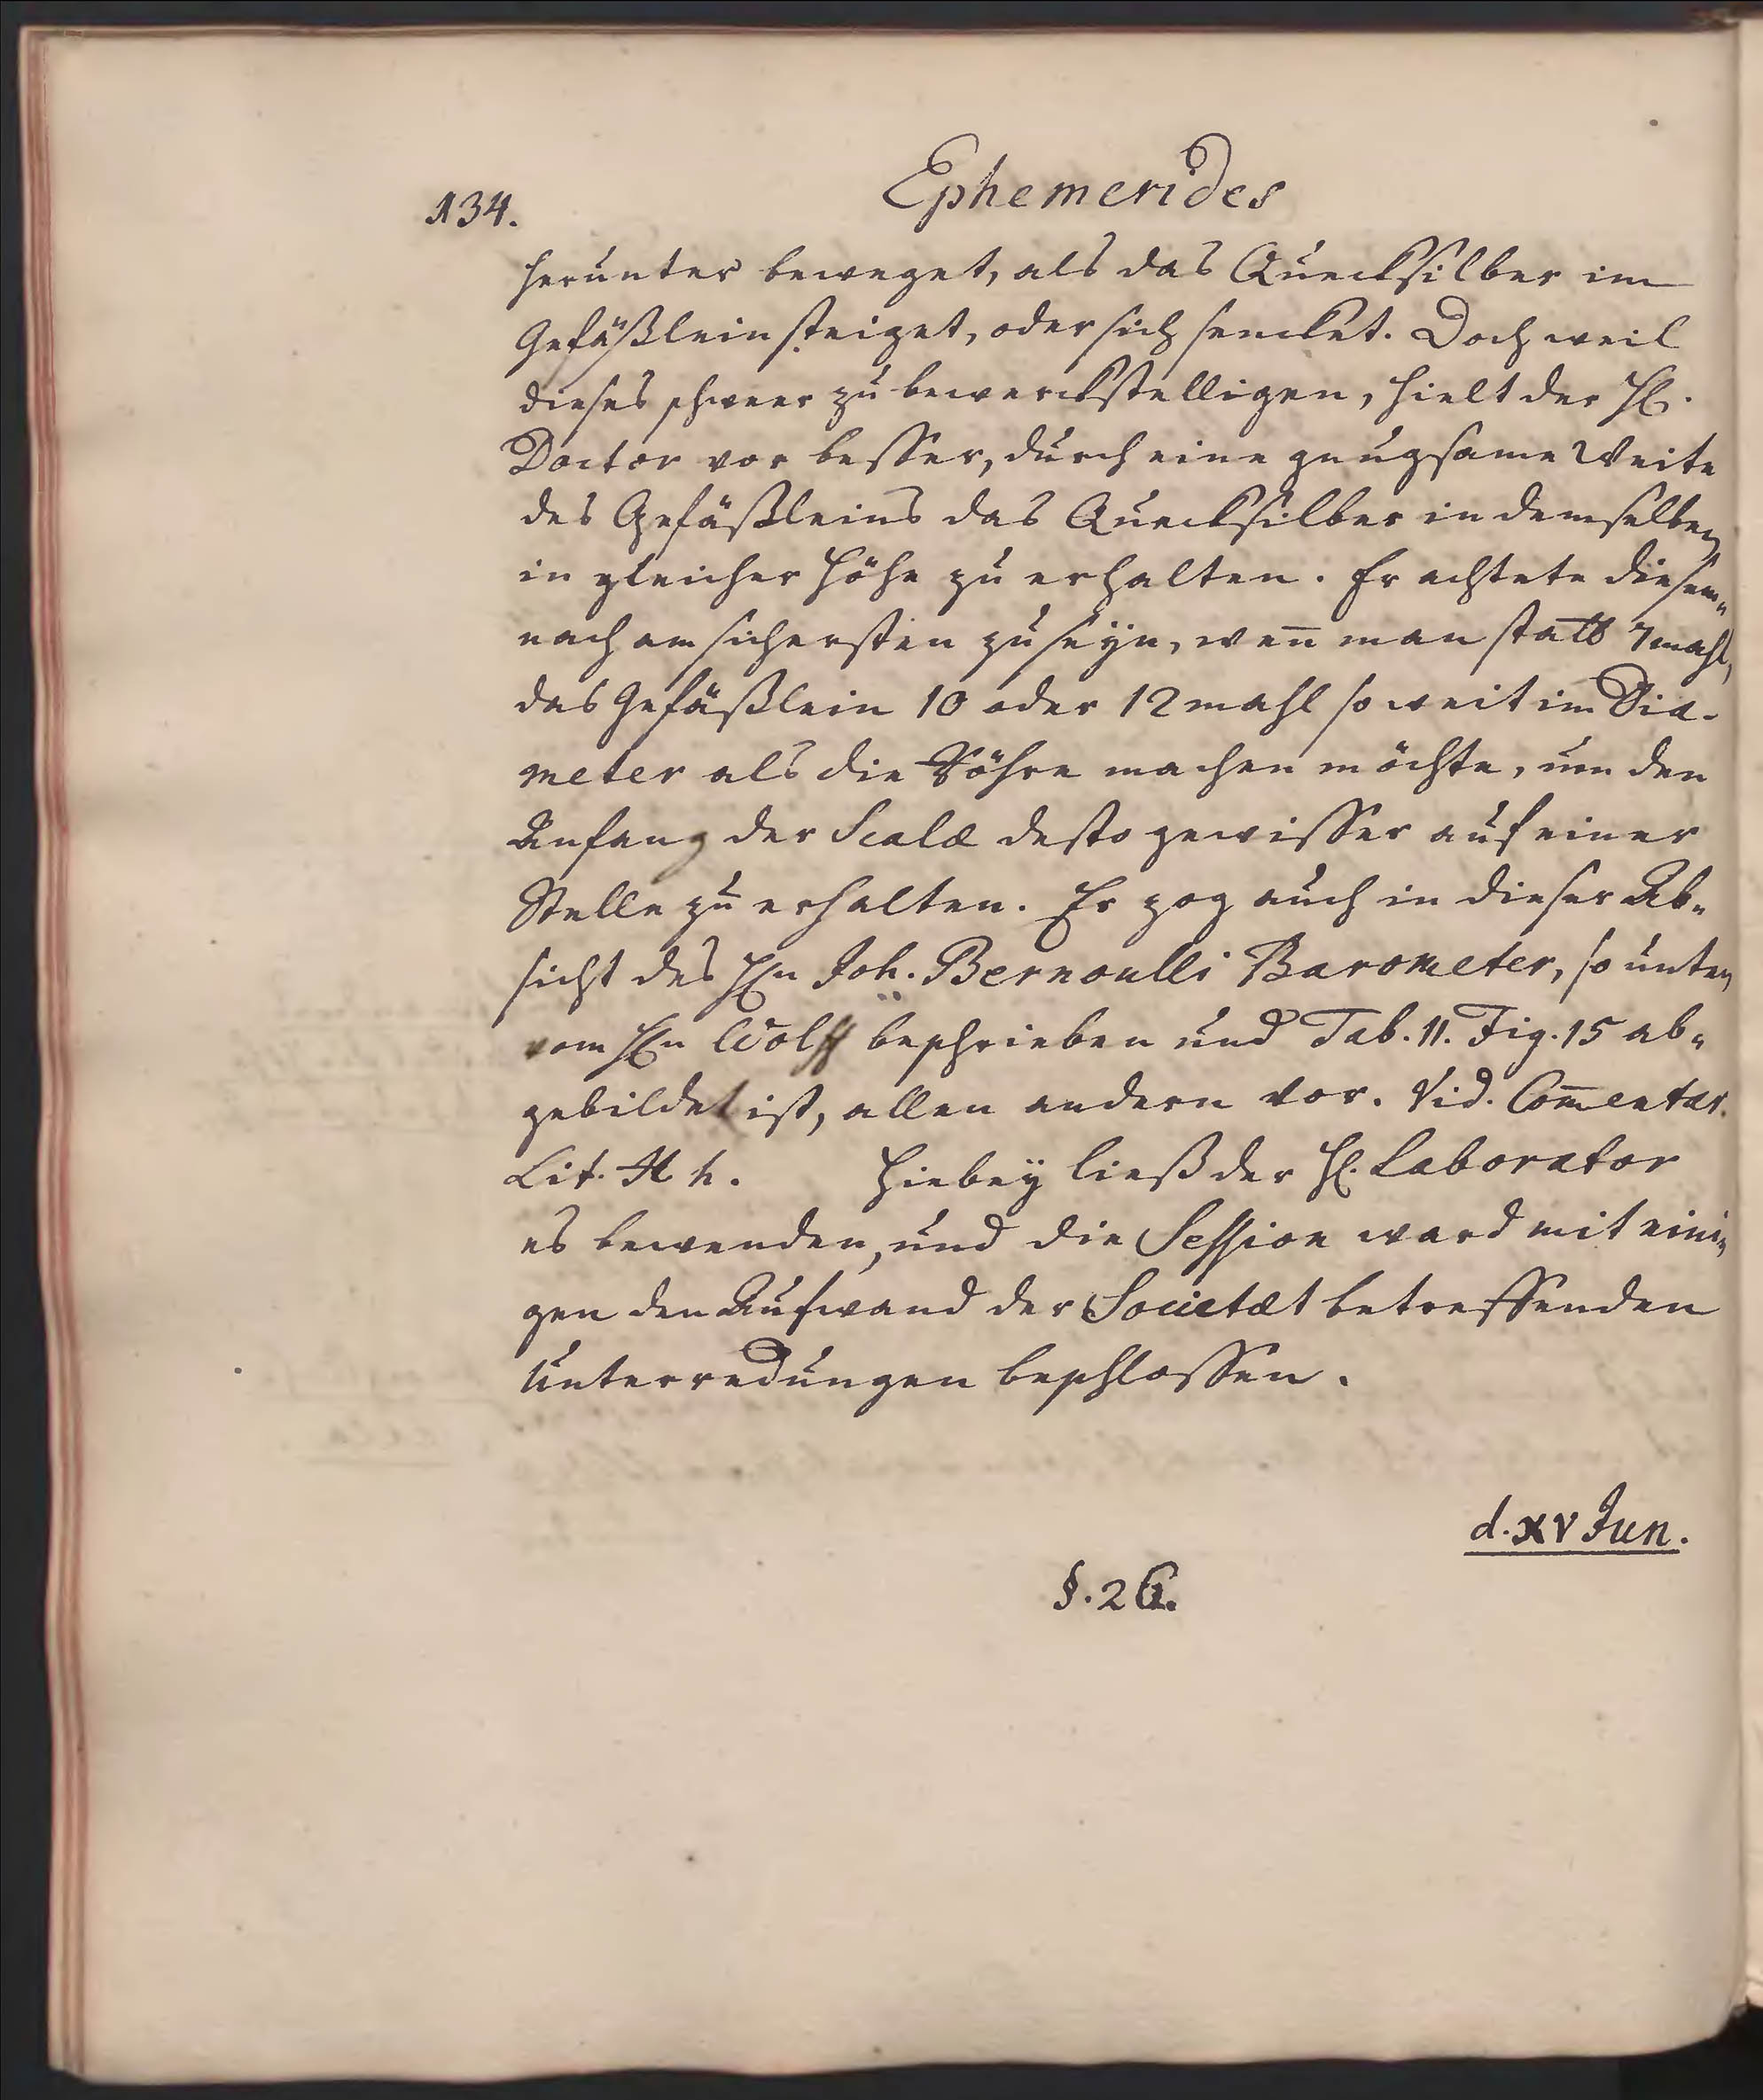 134.
Ephemerides
herunter beweget, als das Quecksilber im
Gefäßlein steiget, oder sich sencket. Doch weil
dieses schweer zu bewerckstelligen, hielt der H.
Doctor vor besser, durch eine gnugsame Weite
des Gefäßleins das Quecksilber in demselben
in gleicher Höhe zu erhalten. Er achtete diesem„
nach am sichersten zu seyn, wen̄ man statt 7mahl,
das Gefäßlein 10 oder 12mahl so weit im Dia-
meter als die Röhre machen möchte, um den
Anfang der Scalæ desto gewisser auf einer
Stelle zu erhalten. Er zog auch in dieser Ab„
sicht des Hn Joh. Bernoulli Barometer, so unten
vom Hn Wolff beschrieben und Tab. 11. Fig. 15 ab„
gebildet ist, allen andern vor. Vid. Com̄entar.
Lit. H h. Hiebey ließ der H. Laborator
es bewenden, und die Session ward mit eini„
gen den Aufwand der Societæt betreffenden
Unterredungen beschlossen.
d. XV Jun.
§. 26.